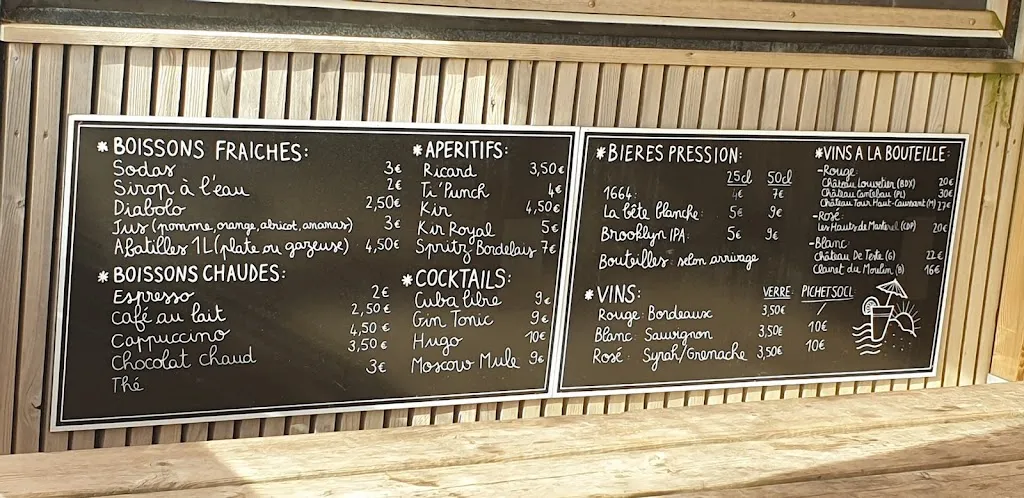 * BOISSONS FRAICHES:
Sodas 3€
Sirop à l'eau 2€
Diabolo 2,50€
Jus (pomme, orange, abricot, ananas) 3€
Abatilles 1L (plate ou gazeuse) 4,50€
* BOISSONS CHAUDES:
Espresso 2€
Café au lait 2,50€
Cappuccino 4,50€
Chocolat chaud 3,50€
Thé 3€
* APERITIFS:
Ricard 3,50€
Ti'Punch 4€
Kir 4,50€
Kir Royal 5€
Spritz Bordelais 7€
* COCKTAILS:
Cuba libre 9€
Gin Tonic 9€
Hugo 10€
Moscow Mule 9€
* BIERES PRESSION:
25cl 50cl
1664: 4€ 7€
La bête blanche: 5€ 9€
Brooklyn IPA: 5€ 9€
Bouteilles: selon arrivage
* VINS: VERRE: PICHET 50CL
Rouge: Bordeaux 3,50€ /
Blanc: Sauvignon 3,50€ 10€
Rosé: Syrah/Grenache 3,50€ 10€
* VINS A LA BOUTEILLE:
-Rouge:
Château Louvetier (BDX) 20€
Château (PL) 30€
Château Tour Haut-Caussant (M) 27€
-Rosé:
Les Hauts de (CDP) 20€
-Blanc:
Château De Teste (G) 22€
Clairet du Moulin (B) 16€